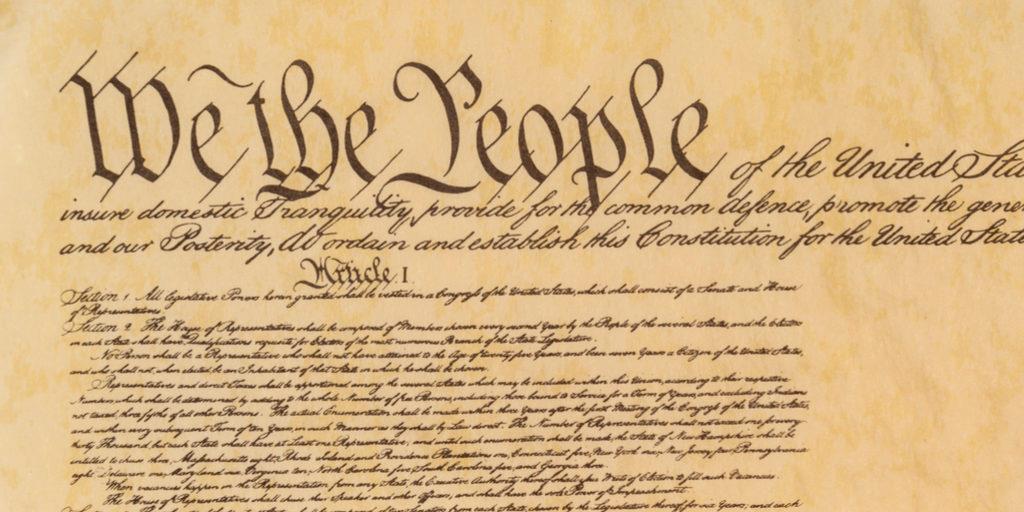 We the People of the United Sta
insure domestic Tranquility, provide for the common defence, promote the gene
and our Posterity, do ordain and establish this Constitution for the United State
Article I
Section 1. All legislative Powers herein granted shall be vested in a Congress of the United States, which shall consist of a Senate and House
of Representatives.
Section 2. The House of Representatives shall be composed of Members chosen every second Year by the People of the several States, and the Electors
in each State shall have Qualifications requisite for Electors of the most numerous Branch of the State Legislature.
No Person shall be a Representative who shall not have attained to the Age of twenty five Years, and been seven Years a Citizen of the United States,
and who shall not, when elected, be an Inhabitant of that State in which he shall be chosen.
Representatives and direct Taxes shall be apportioned among the several States which may be included within this Union, according to their respective
Numbers, which shall be determined by adding to the whole Number of free Persons, including those bound to Service for a Term of Years, and excluding Indians
not taxed, three fifths of all other Persons. The actual Enumeration shall be made within three Years after the first Meeting of the Congress of the United States,
and within every subsequent Term of ten Years, in such Manner as they shall by Law direct. The Number of Representatives shall not exceed one for every
thirty Thousand, but each State shall have at Least one Representative; and until such enumeration shall be made, the State of New Hampshire shall be
entitled to chuse three, Massachusetts eight, Rhode Island and Providence Plantations one, Connecticut five, New York six, New Jersey four, Pennsylvania
eight, Delaware one, Maryland six, Virginia ten, North Carolina five, South Carolina five, and Georgia three.
When vacancies happen in the Representation from any State, the Executive Authority thereof shall issue Writs of Election to fill such Vacancies.
The House of Representatives shall chuse their Speaker and other Officers; and shall have the sole Power of Impeachment.
from each State, chosen by the Legislature thereof, for six Years; and each